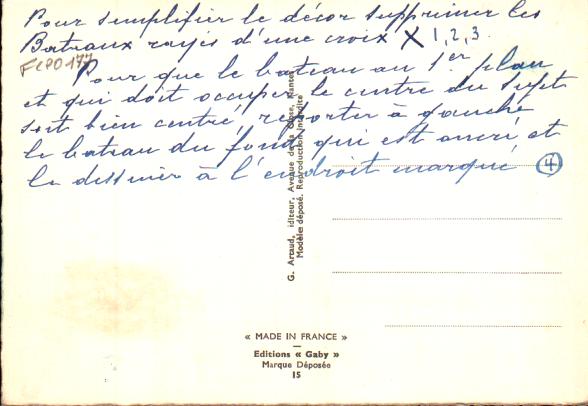 Pour simplifier le décor supprimer les
Bateaux rayés d'une croix X 1, 2, 3.
FCPO177
Pour que le bateau au 1er plan
et qui doit occuper le centre du sujet
soit bien centré, reporter à gauche
le bateau du fond qui est ancré et
le dessiner à l'endroit marqué 4
G. Artaud, éditeur, Avenue de la Close, Nantes
Modèles déposé. Reproduction interdite
« MADE IN FRANCE »
Editions « Gaby »
Marque Déposée
15